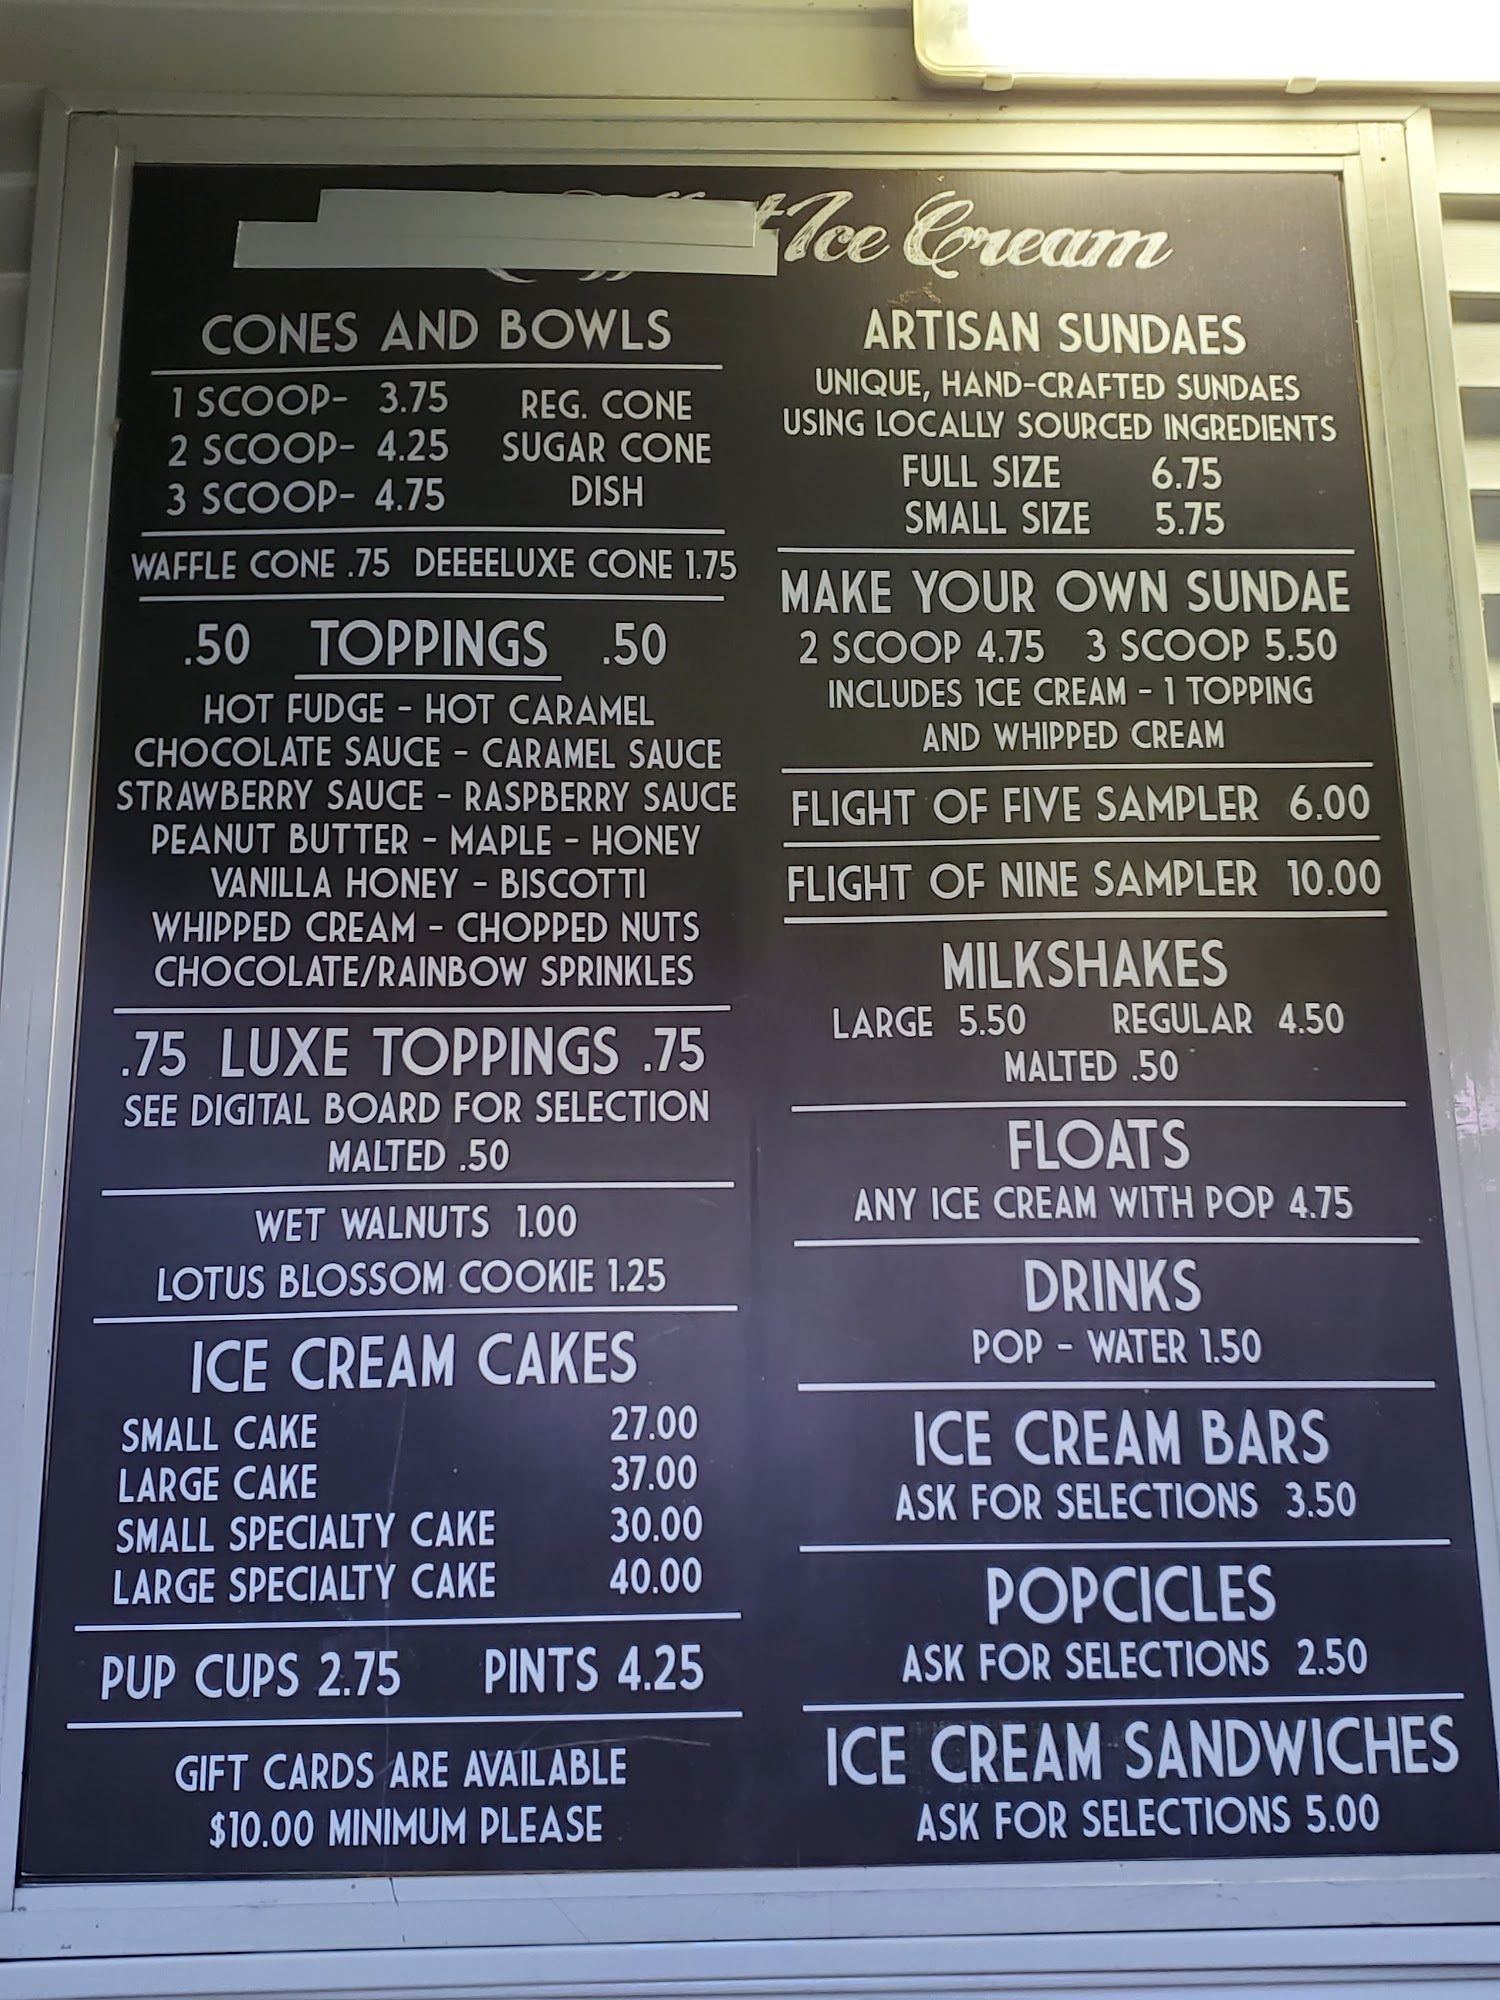 Ice Cream
CONES AND BOWLS
1 SCOOP- 3.75 REG. CONE
2 SCOOP- 4.25 SUGAR CONE
3 SCOOP- 4.75 DISH
WAFFLE CONE .75 DEEEELUXE CONE 1.75
.50 TOPPINGS .50
HOT FUDGE - HOT CARAMEL
CHOCOLATE SAUCE - CARAMEL SAUCE
STRAWBERRY SAUCE - RASPBERRY SAUCE
PEANUT BUTTER - MAPLE - HONEY
VANILLA HONEY - BISCOTTI
WHIPPED CREAM - CHOPPED NUTS
CHOCOLATE/RAINBOW SPRINKLES
.75 LUXE TOPPINGS .75
SEE DIGITAL BOARD FOR SELECTION
MALTED .50
WET WALNUTS 1.00
LOTUS BLOSSOM COOKIE 1.25
ICE CREAM CAKES
SMALL CAKE 27.00
LARGE CAKE 37.00
SMALL SPECIALTY CAKE 30.00
LARGE SPECIALTY CAKE 40.00
PUP CUPS 2.75 PINTS 4.25
GIFT CARDS ARE AVAILABLE
$10.00 MINIMUM PLEASE
ARTISAN SUNDAES
UNIQUE, HAND-CRAFTED SUNDAES
USING LOCALLY SOURCED INGREDIENTS
FULL SIZE 6.75
SMALL SIZE 5.75
MAKE YOUR OWN SUNDAE
2 SCOOP 4.75 3 SCOOP 5.50
INCLUDES ICE CREAM - 1 TOPPING
AND WHIPPED CREAM
FLIGHT OF FIVE SAMPLER 6.00
FLIGHT OF NINE SAMPLER 10.00
MILKSHAKES
LARGE 5.50 REGULAR 4.50
MALTED .50
FLOATS
ANY ICE CREAM WITH POP 4.75
DRINKS
POP - WATER 1.50
ICE CREAM BARS
ASK FOR SELECTIONS 3.50
POPCICLES
ASK FOR SELECTIONS 2.50
ICE CREAM SANDWICHES
ASK FOR SELECTIONS 5.00